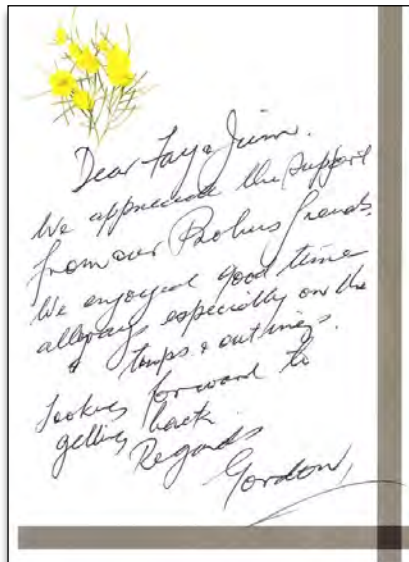 Dear Faye & Jim.
We appreciate the support
from our Probus friends.
We enjoyed good times
always especially on the
& trips & outings.
Looking forward to
getting back.
Regards
Gordon,